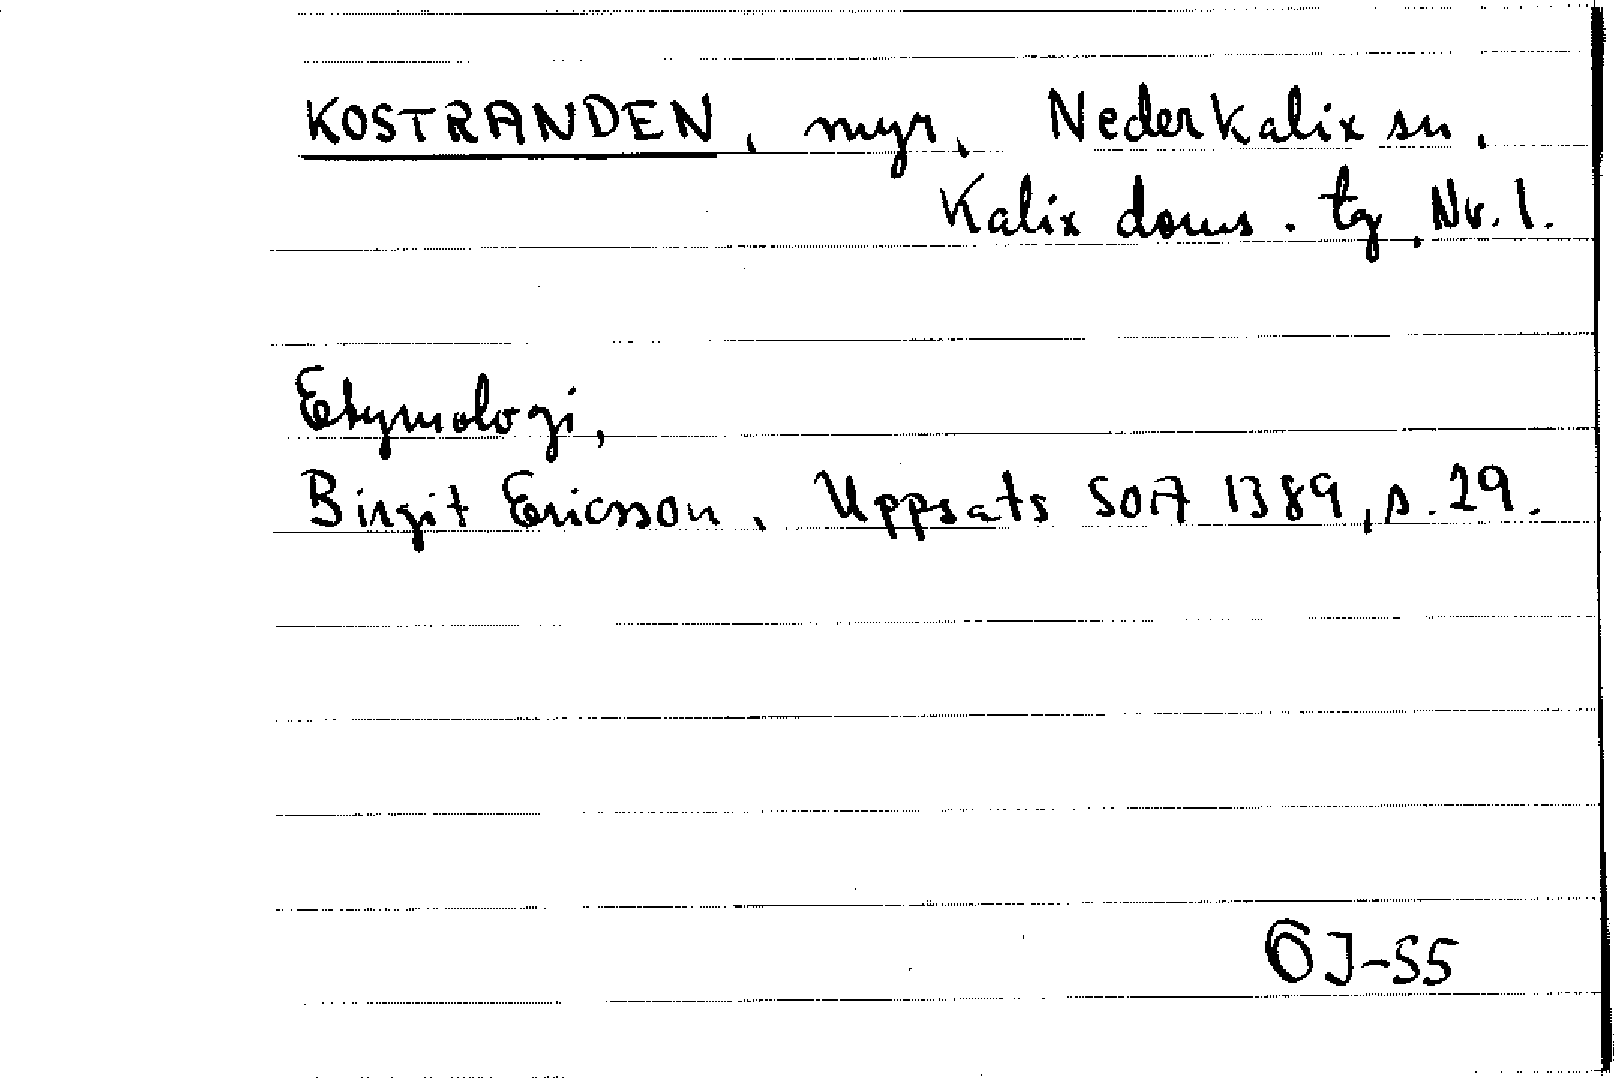 KOSTRANDEN, myr, Nederkalix sn,
Kalix doms. tg, Nr. 1.
Etymologi,
Birgit Ericsson, Uppsats SOA 1389, s. 29.